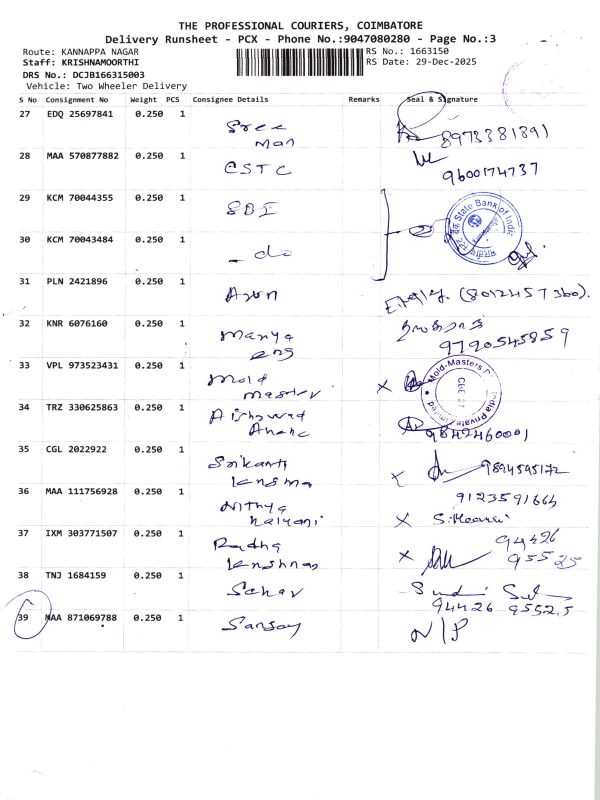 THE PROFESSIONAL COURIERS, COIMBATORE
Delivery Runsheet - PCX - Phone No.:9047080280 - Page No.:3
Route: KANNAPPA NAGAR
RS No.: 1663150
Staff: KRISHNAMOORTHI
RS Date: 29-Dec-2025
DRS No.: DCJB166315003
Vehicle: Two Wheeler Delivery
S No Consignment No Weight PCS Consignee Details Remarks Seal & Signature
27 EDQ 25697841 0.250 1 Sree man 8973381391
28 MAA 570877882 0.250 1 CSTC 9600174737
29 KCM 70044355 0.250 1 SBI State Bank of India
30 KCM 70043484 0.250 1 - do
31 PLN 2421896 0.250 1 Arun (8012457360).
32 KNR 6076160 0.250 1 Manya eng 9790545859
33 VPL 973523431 0.250 1 Mold master X Mold-Masters India Private Limited
34 TRZ 330625863 0.250 1 9842460001
35 CGL 2022922 0.250 1 Srikanth X 9894595172
36 MAA 111756928 0.250 1 Nithya kalyani 9123591664 X
37 IXM 303771507 0.250 1 Radha X 94426 95525
38 TNJ 1684159 0.250 1 94426 95525
39 MAA 871069788 0.250 1 Sanjay N/P